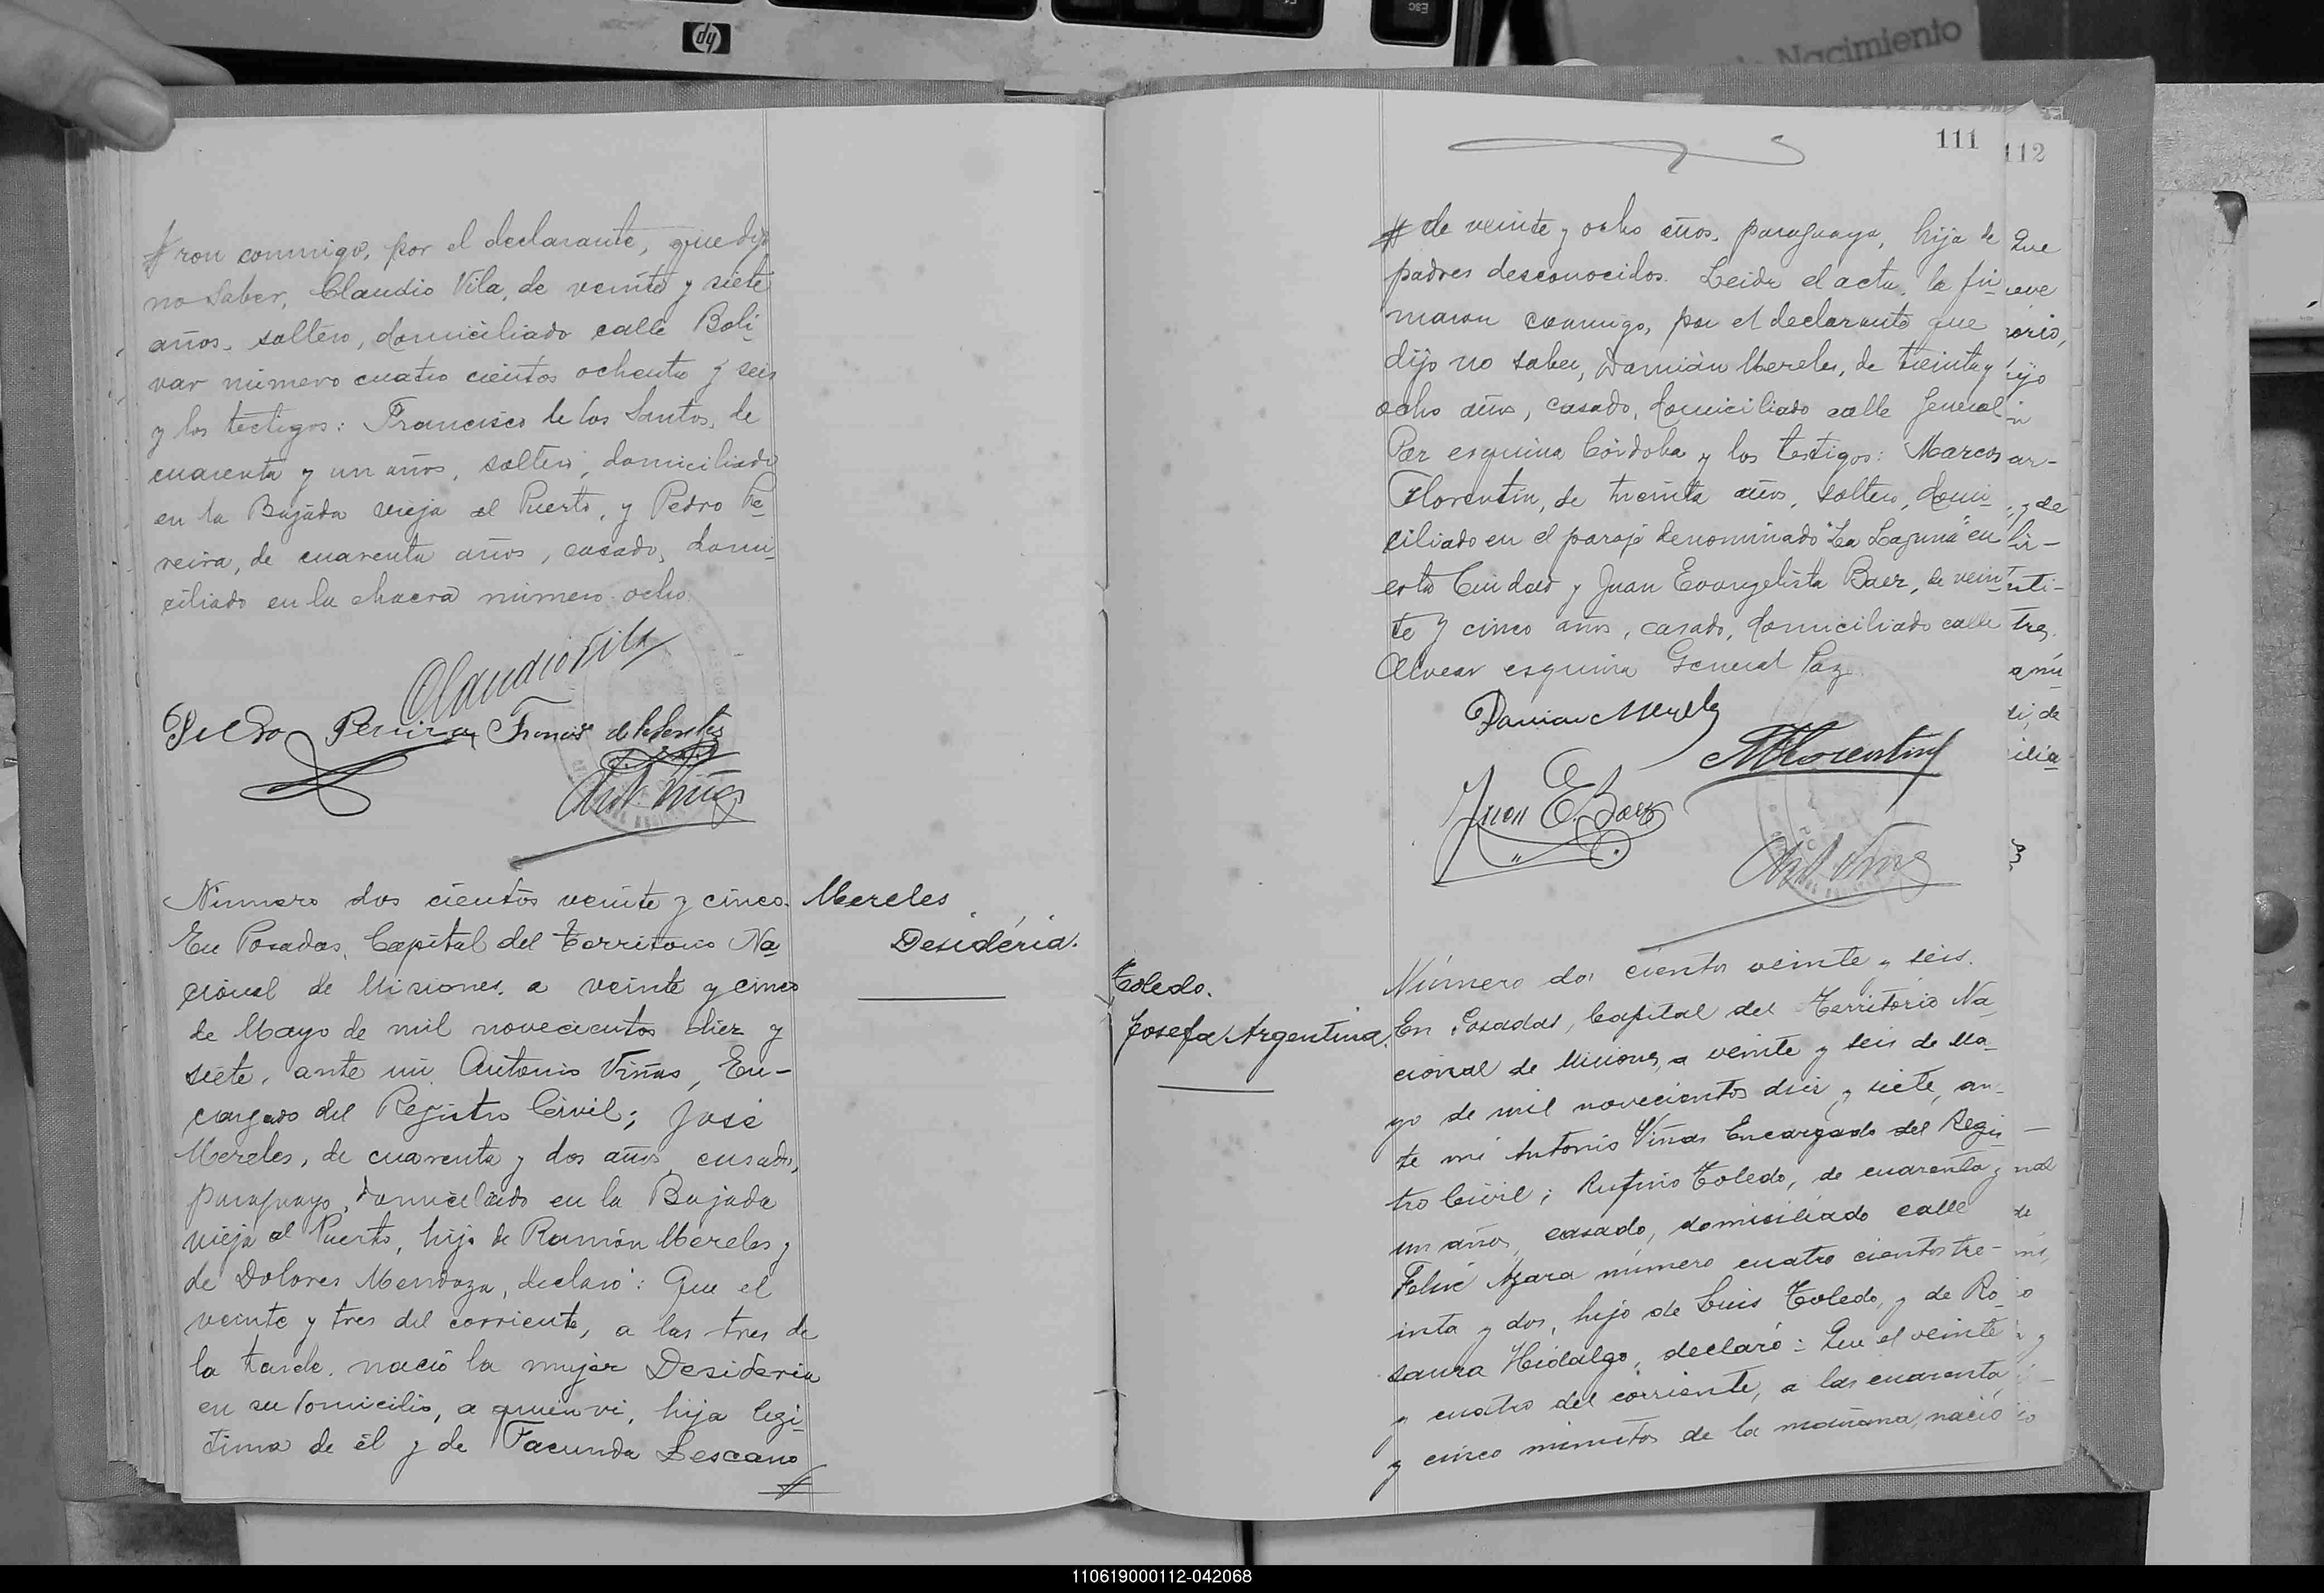 hp
ESC
Nacimiento
ron conmigo, por el declarante, que dijo
no saber, Claudio Vila, de veinte y siete
años, soltero, domiciliado calle Boli-
var número cuatro cientos ochenta y seis
y los testigos: Francisco de los Santos, de
cuarenta y un años, soltero, domiciliado
en la Bajada vieja al Puerto, y Pedro Pe-
reira, de cuarenta años, casado, domi-
ciliado en la chacra número ocho.
Claudio Vila
Pedro Pereira Francisco de los Santos
Ant. Viñas
Número dos cientos veinte y cinco.
En Posadas, Capital del Territorio Na-
cional de Misiones, a veinte y cinco
de Mayo de mil novecientos diez y
siete, ante mi Antonio Viñas, En-
cargado del Registro Civil; José
Mereles, de cuarenta y dos años, casado,
paraguayo, domiciliado en la Bajada
vieja al Puerto, hijo de Ramón Mereles y
de Dolores Mendoza, declaró: Que el
veinte y tres del corriente, a las tres de
la tarde, nació la mujer Desideria
en su domicilio, a quien vi, hija legi-
tima de él y de Facunda Lescano
Mereles
Desidéria.
111
de veinte y ocho años, paraguaya, hija de
padres desconocidos. Leida el acta, la fir-
maron conmigo, por el declarante que
dijo no saber, Damián Mereles, de treinta y
ocho años, casado, domiciliado calle General
Paz esquina Córdoba y los testigos: Marcos
Florentín, de treinta años, soltero, domi-
ciliado en el paraje denominado "La Laguna" en
esta Ciudad y Juan Evangelista Baez, de vein-
te y cinco años, casado, domiciliado calle
Alvear esquina General Paz
Damian Mereles
M Florentin
Juan E. Baez
Ant Viñas
Toledo.
Josefa Argentina.
Número dos cientos veinte y seis.
En Posadas, Capital del Territorio Na-
cional de Misiones, a veinte y seis de Ma-
yo de mil novecientos diez y siete, an-
te mi Antonio Viñas Encargado del Regis-
tro Civil; Rufino Toledo, de cuarenta y
un años, casado, domiciliado calle
Felix Azara número cuatro cientos tre-
inta y dos, hijo de Luis Toledo, y de Ro-
saura Hidalgo, declaró: Que el veinte
y cuatro del corriente, a las cuarenta
y cinco minutos de la mañana, nació
112
Que
hijo
ar-
y de
tres
110619000112-042068